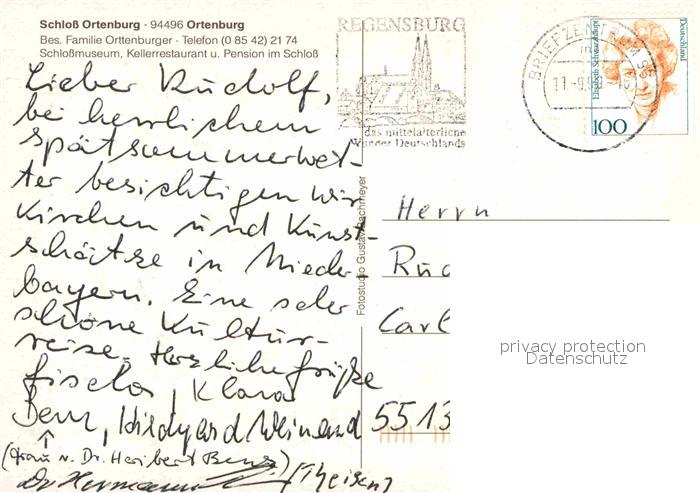 Schloß Ortenburg - 94496 Ortenburg
Bes. Familie Orttenburger - Telefon (0 85 42) 21 74
Schloßmuseum, Kellerrestaurant u. Pension im Schloß
Lieber Rudolf,
bei herrlichem
spätsommerwet-
ter besichtigen wir
Kirchen und Kunst-
schätze in Nieder-
bayern. Eine sehr
schöne Kultur-
reise. Herzliche Grüße
Gisela, Klara
Benz, Hildgard Weinand
(Frau v. Dr. Heribert Benz)
Dr Hermann (Theisen)
REGENSBURG
das mittelalterliche
Wunder Deutschlands
BRIEFZENTRUM 93
Elisabeth Schwarzhaupt
Deutschland
100
Fotostudio Gustav Bachmeyer
Herrn
Rud
Carl
5513
privacy protection
Datenschutz